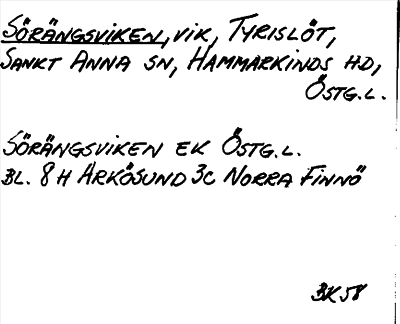 SÖRÄNGSVIKEN, VIK, TYRISLÖT,
SANKT ANNA SN, HAMMARKINDS HD,
ÖSTG.L.
SÖRÄNGSVIKEN EK ÖSTG.L.
BL. 8H ARKÖSUND 3C NORRA FINNÖ
BK58